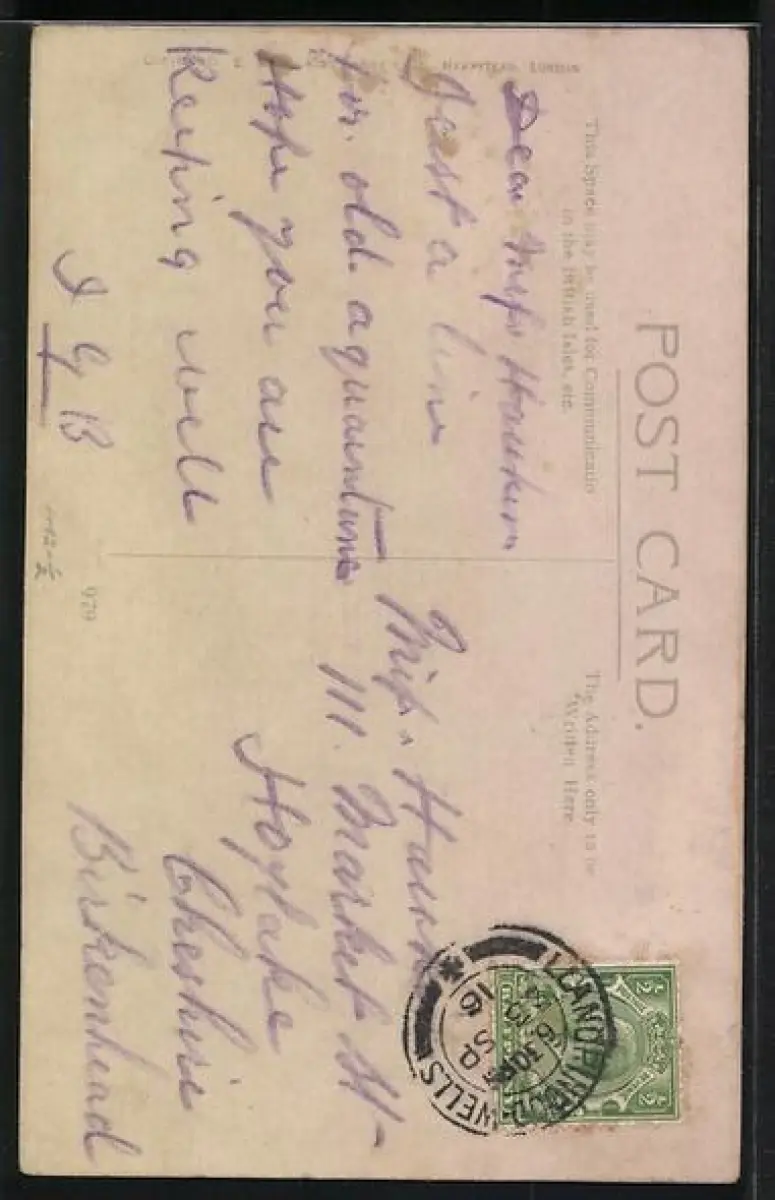 POST CARD.
This Space may be used for Communicatio
in the British Isles, etc.
The Address only to be
Written Here
HAMPSTEAD, LONDON
Dear Miss
Just a line
for. old. aquaintance
Hope you are
Keeping well
I G B
979
Miss
111. Market St-
Hoylake
Cheshire
Birkenhead
LLANDRINDOD WELLS
6 30PM
SP
16
½ ½